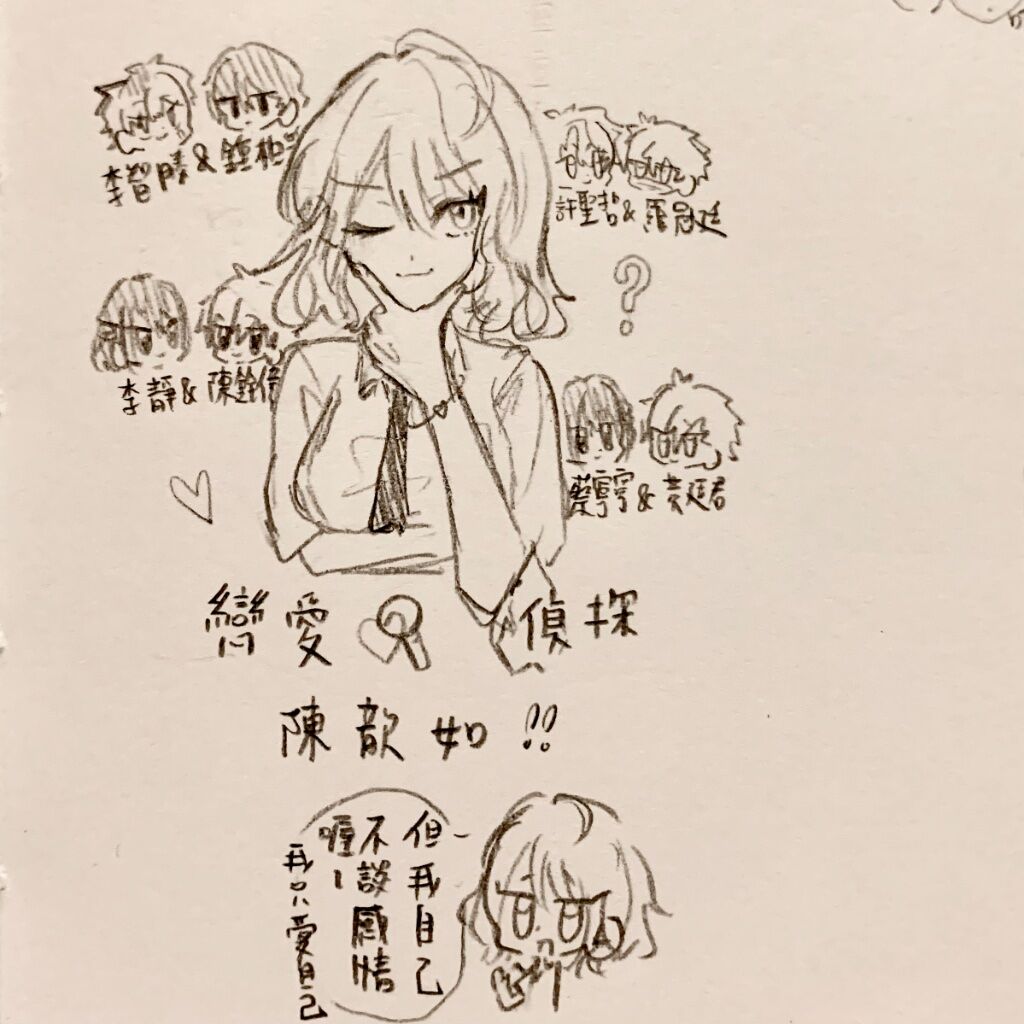 李智陵 & 鎮柏
許聖哲 & 羅冠廷
?
李靜 & 陳銓倍
蔡寧 & 黃延君
戀愛 偵探
陳歆如!!
但我自己
不談感情
喔~
我只愛自己